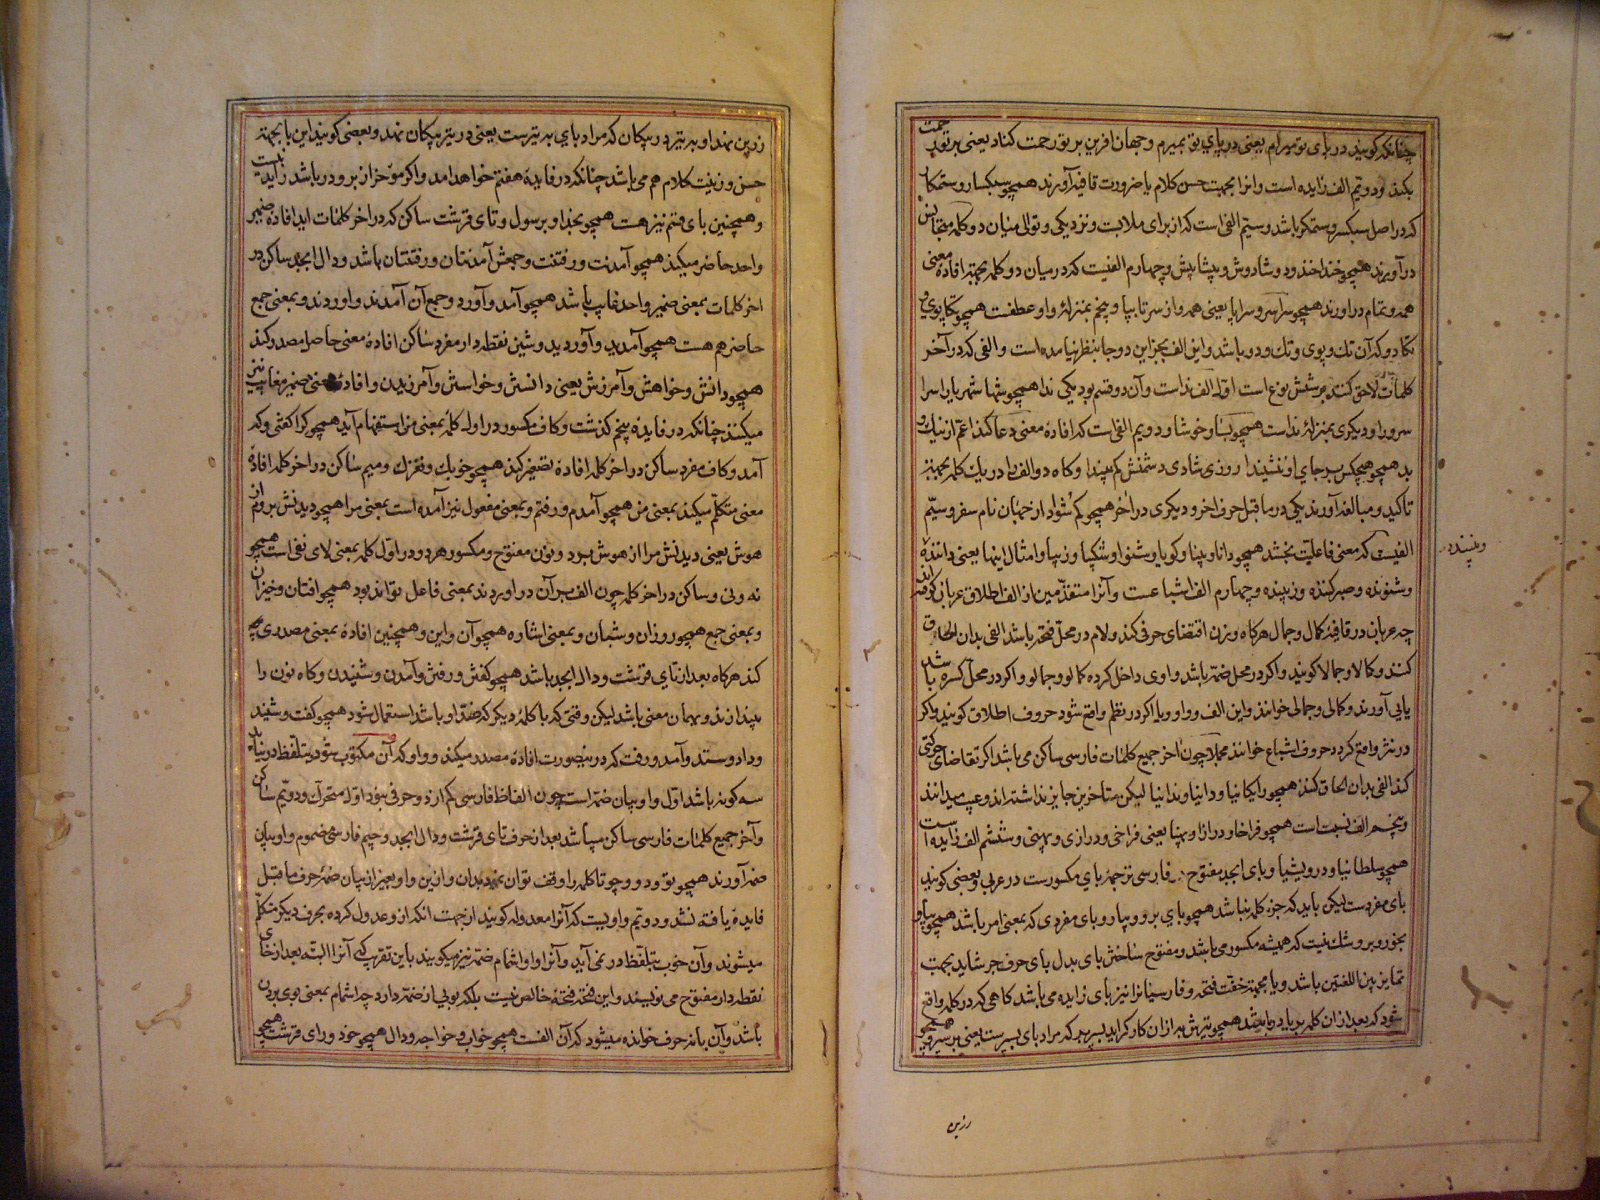 چنانکه کویند در بای تو میرام یعنی در پای تو بمیرم و جهان افرین بر تو رحمت کناد یعنی بر تو رحمت
بکند و دویم الف زایده است و انرا بجهت حسن کلام یا ضرورت قافیه آورند همچو سبکسار و ستمکار
که در اصل سبکسر و ستمکر باشد و سیم الفی است که از برای ملابست و نزدیکی و توالی میان دو کلمه متجانس
در آورند همچو خنداخند و دوشادوش و پیشاپیش و چهارم الفیست که در میان دو کلمه بجهته افادهٔ معنی
همه و تمام در اورند همچو سراسر و سراپا یعنی همه و از سر تا بپا و پنجم بمنزلهٔ واو عطفست همچو تکاپوی و
تکادو که آن تک و پوی و تک و دو باشد و این الف بجز این دو جا بنظر نیامده است و الفی که در آخر
کلمات لاحق کنند بر شش نوع است اول الف نداست و آن دو قسم بود یکی ندا همچو شها شهریارا سرا
سرورا و دیکری بمنزلهٔ نداست همچو بسا و خوشا و دویم الفی است که افادهٔ معنی دعا کند اعم از نیک و
بد همچو هیچکس بر جای او ننشیندا روزی شادی دشمنش کم بیندا و کاه دو الف را در یک کلمه بجهته
تاکید و مبالغه آورند یکی در ما قبل حرف اخر و دیکری در آخر همچو کم شوادا از جهان نام سفر و سیم
الفیست که معنی فاعلیت بخشد همچو دانا و بینا و کویا و شنوا و شکیبا و زیبا و امثال اینها یعنی داننده
و بیننده
و شنونده و صبر کننده و زیبنده و چهارم الف اشباعست و آنرا متقدمین از الف اطلاق عربان کرفته‌اند
چه عربان در قافیهٔ کمال و جمال هرکاه وزن اقتضای حرفی کند و لام در محل فتحه باشد الفی بدان الحاق
کنند و کمالا و جمالا کویند و اکر در محل ضمه باشد واوی داخل کرده کمالو و جمالو و اکر در محل کسره باشد
یایی آورند و کمالی و جمالی خوانند و این الف و واو و یا اکر در نظم واقع شود حروف اطلاق کویند و اکر
در نثر واقع کردد حروف اشباع خوانند مجملا چون اخر جمیع کلمات فارسی ساکن می باشد اکر تقاضای حرکتی
کند الفی بدان الحاق کنند همچو رایکانیا و دانیا و ندانیا لیکن متاخرین جایز نداشته‌اند و عیب میدانند
و پنجم الف نسبت است همچو فراخا و درازا و پهنا یعنی فراخی و درازی و پهنی و ششم الف زایده است
همچو سلطانیا و درویشیا و بای ابجد مفتوح در فارسی ترجمهٔ بای مکسورست در عربی و بعضی کویند
بای مفردست لیکن باید که جزء کلمه نباشد همچو بای برو و بیار و بای مفردی که بمعنی امر باشد همچو بیا و
بخور و برو شک نیست که همیشه مکسور می باشد و مفتوح ساختن بای بدل بای حرف جر شاید بجهت
تمایز بین اللغتین باشد و یا بجهته خفت فتحه و فارسیانرا نیز بای زایده می باشد کاهی که در کلمه واقع
شود که بعد از ان کلمه بر یا در باشد همچو تیرش بپر از ان کار کر اید بسر بر که مراد بای بسرست یعنی بر سر و همچو
زرین
زرین نهد او بر تیر در پیکان که مراد بای به تیرست یعنی در تیر پیکان نهد و بعضی کویند این با بجهته
حسن و زینت کلام هم می باشد چنانکه در فایدهٔ هفتم خواهد امد و اکر مؤخر از بر و در باشد زاید نیست
و همچنین بای فتم نیز هست همچو بخدا و برسول و تای قرشت ساکن که در اخر کلمات اید افادهٔ ضمیر
واحد حاضر میکند همچو آمدنت و رفتنت و جمعش آمدنتان و رفتنتان باشد و دال ابجد ساکن در
اخر کلمات بمعنی ضمیر واحد غایب باشد همچو آمد و آورد و جمع آن آمدند و اوردند و بمعنی جمع
حاضر هم هست همچو آمدید و آوردید و شین نقطه دار مفرد ساکن افادهٔ معنی حاصل مصدر کند
همچو دانش و خواهش و آمرزش یعنی دانستن و خواستن و آمرزیدن و افادهٔ معنی ضمیر غایب نیز
میکند چنانکه در فایدهٔ پنجم کذشت و کاف مکسور در اول کلمه بمعنی من استفهام آید همچو کرا کفتی و که
آمد و کاف مفرد ساکن در اخر کلمه افادهٔ تصغیر کند همچو خوبک و نغزک و میم ساکن در اخر کلمه افادهٔ
معنی متکلم میکند بمعنی من همچو آمدم و رفتم و بمعنی مفعول نیز آمده است بمعنی مرا همچو دیدنش بردم از
هوش یعنی دیدنش مرا از هوش برد و نون مفتوح و مکسور هر دو در اول کلمه بمعنی لای نفی است همچو
نه و نی و ساکن در اخر کلمه چون الف بر آن در اوردند بمعنی فاعل تواند بود همچو افتان و خیزان
و بمعنی جمع همچو روزان و شبان و بمعنی اشاره همچو آن و این و همچنین افادهٔ بمعنی مصدری هم
کند هرکاه بعد از تای قرشت و دال ابجد باشد همچو کفتن و رفتن و آمدن و شنیدن و کاه نون را
بیندازند و همان معنی باشد لیکن وقتی که با کلمهٔ دیکر که ضد او باشد استعمال شود همچو کفت و شنید
و داد و ستد و آمد و رفت که در ینصورت افادهٔ مصدر میکند و واو که آن مکتوب شود و بتلفظ در نیاید
سه کونه باشد اول واو بیان ضمه است چون الفاظ فارسی کم از دو حرفی نبود اول متحرک و دویم ساکن
و آخر جمیع کلمات فارسی ساکن میباشد بعد از حرف تای قرشت و دال ابجد و جیم فارسی مضموم واو بیان
ضمه آورند همچو تو و دو و چو تا کلمه را وقف توان نمود بدان و ازین واو بغیر از بیان ضمهٔ حرف ما قبل
فایدهٔ یافته نشد و دویم واویست که آنرا معدوله کویند از جهت انکه ازو عدول کرده بحرف دیکر متکلم
میشوند و آن خوب بتلفظ در نمی آید و آنرا واو اشمام ضمه نیز میکویند باین تقریب که آنرا البته بعد از خای
نقطه دار مفتوح می نویسند و این فتحه فتحهٔ خالص نیست بلکه بویی از ضمه دارد چه اشمام بمعنی بوی بردن
باشد و آن با نه حرف خوانده میشود که آن الفست همچو خواب و خواجه و دال همچو خود و رای قرشت همچو